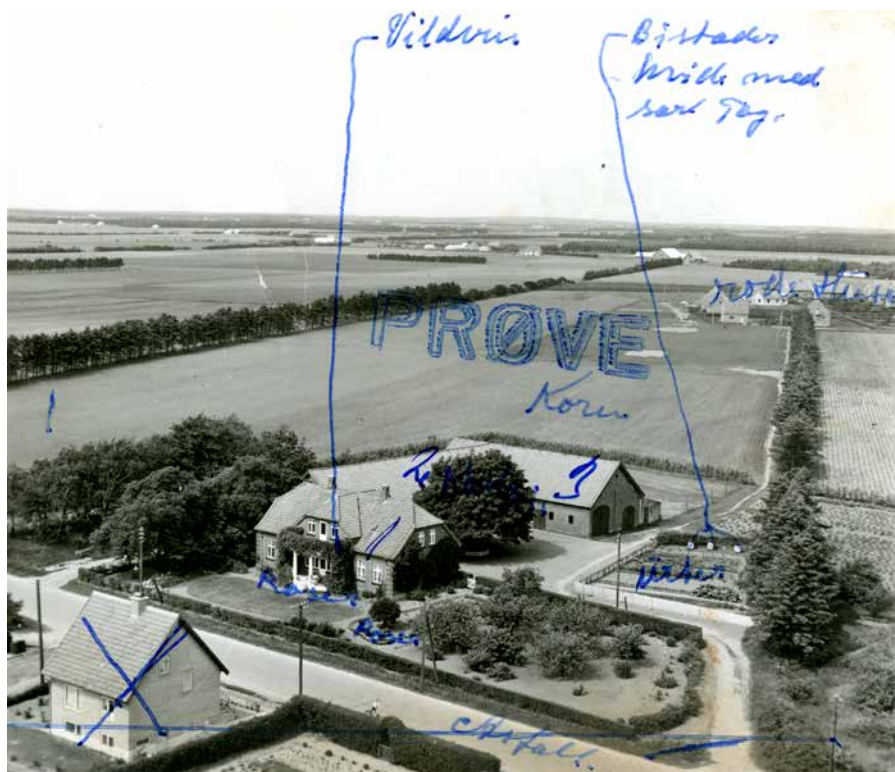 Vildvin
Bistader
hvide med
sort Tag.
røde Huse
PRØVE
Korn
Roser
Roser
Urter
Asfalt